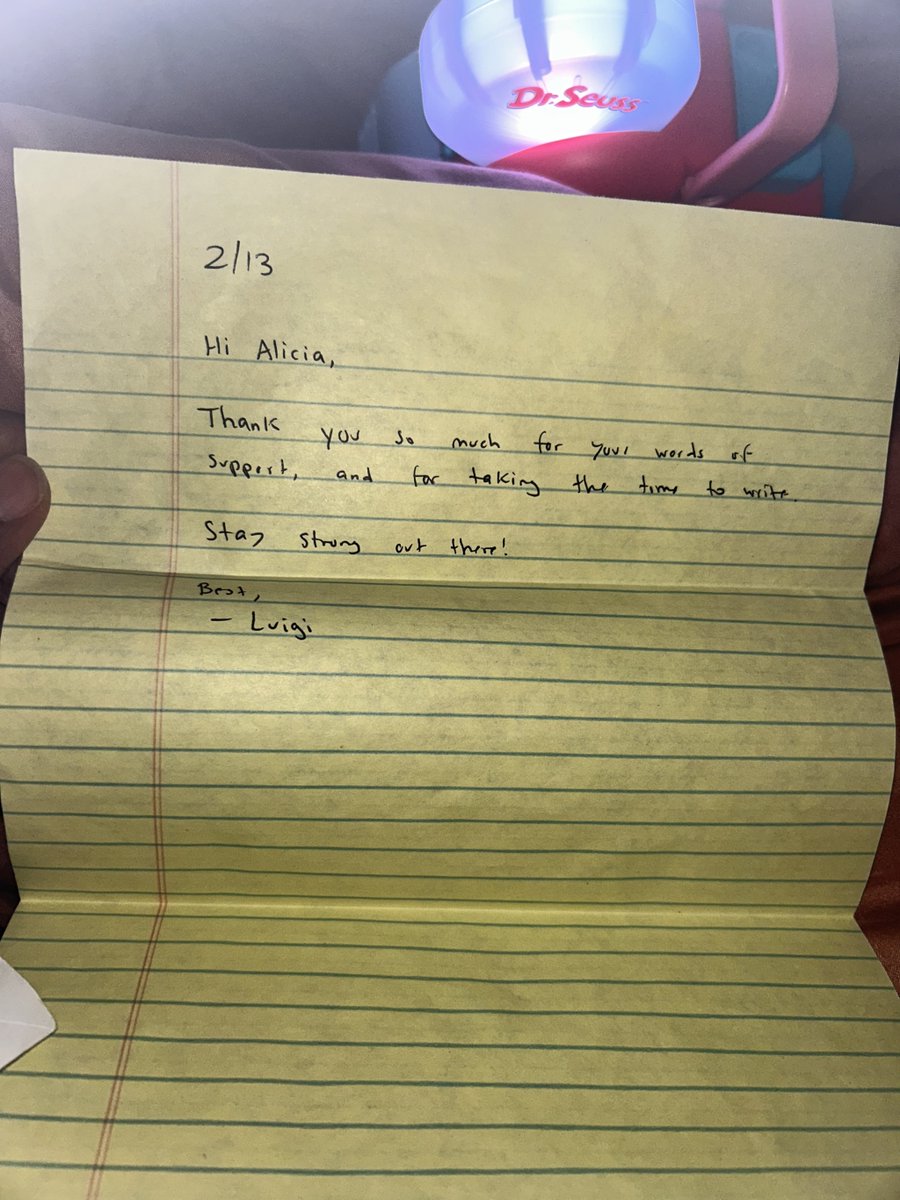 Dr. Seuss
2/13
Hi Alicia,
Thank you so much for your words of
support, and for taking the time to write.
Stay strong out there!
Best,
— Luigi